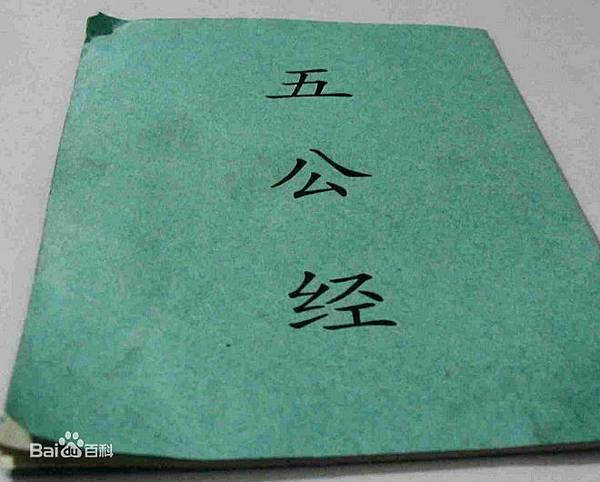 五
公
经
Bai百科